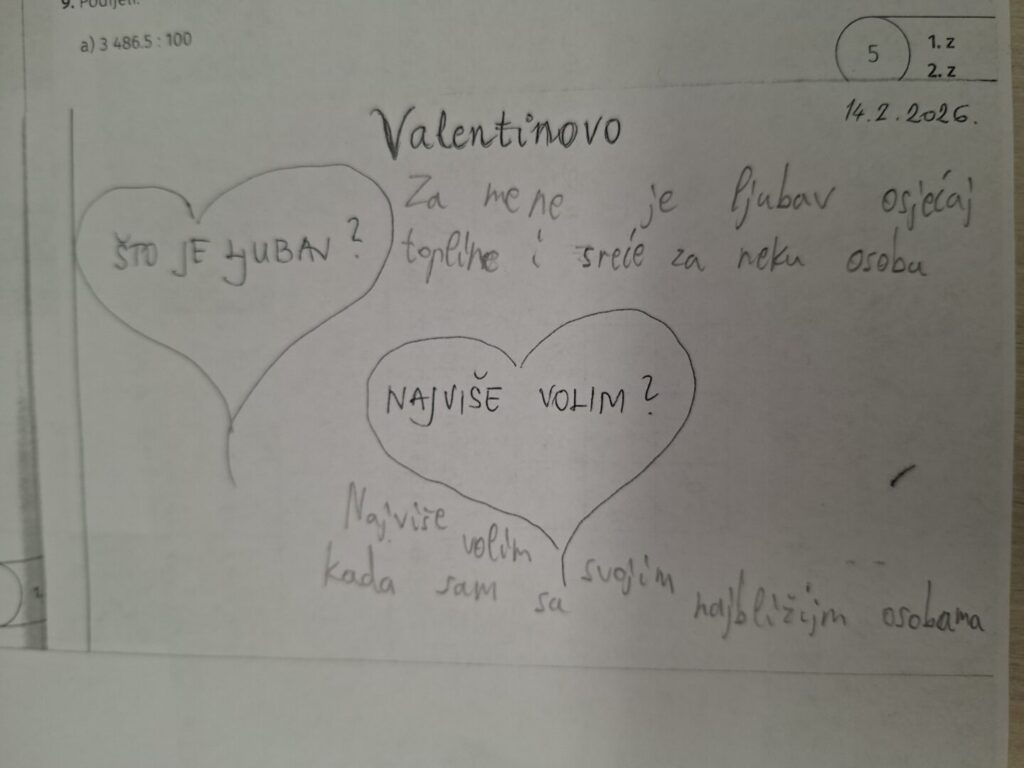 9. Podijeli.
a) 3 486.5 : 100
5
1. z
2. z
14.2.2026.
Valentinovo
ŠTO JE LJUBAV?
Za mene je ljubav osjećaj
topline i sreće za neku osobu
NAJVIŠE VOLIM?
Najviše volim
kada sam sa svojim najbližijm osobama